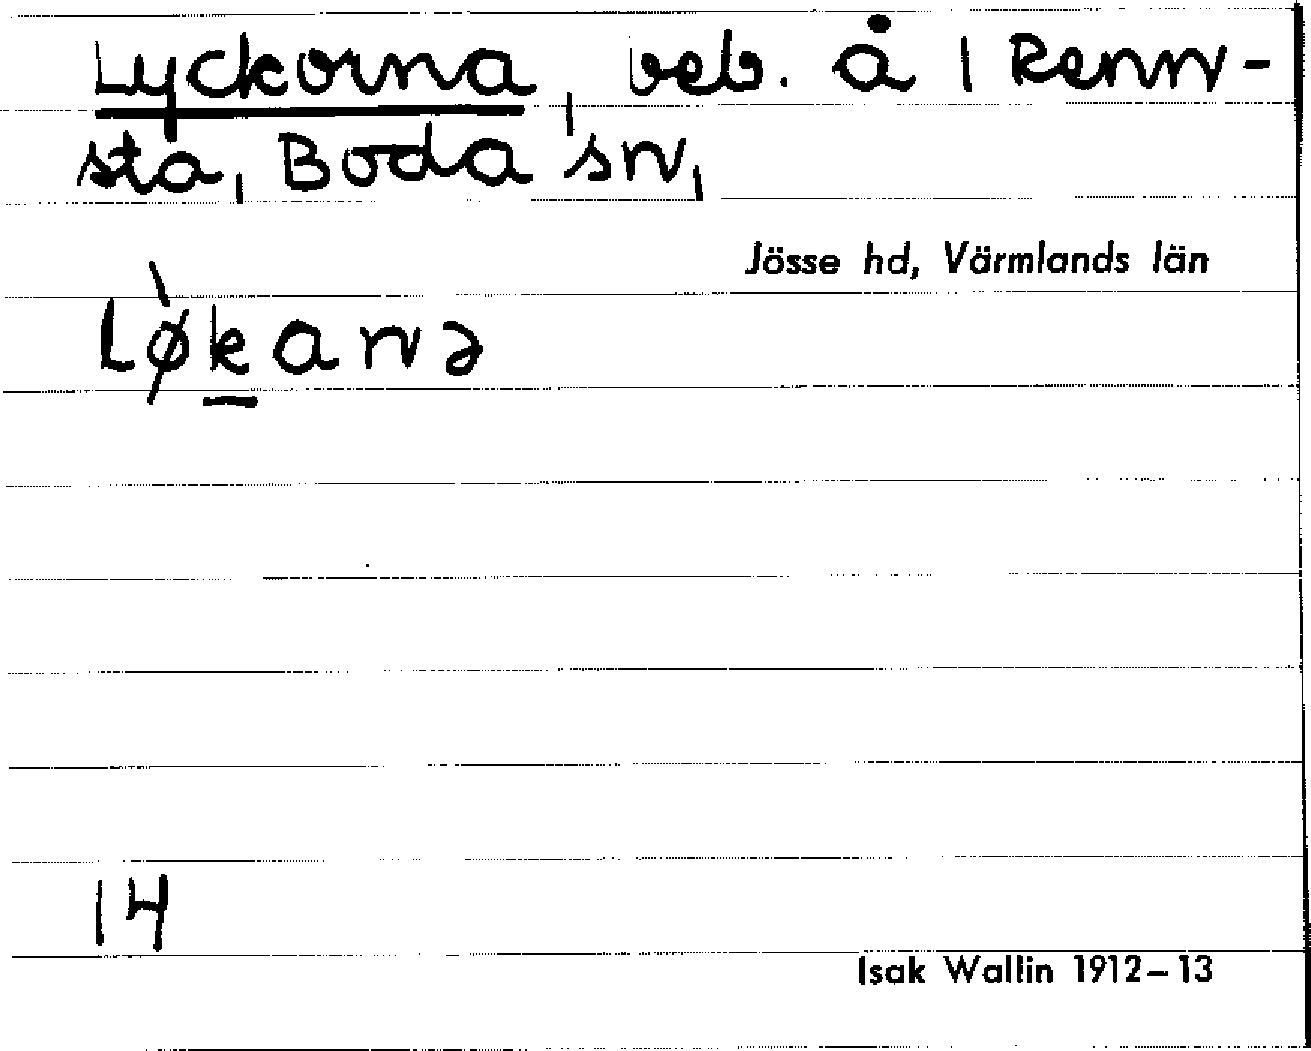 Lyckorna, beb. å 1 Renn-
sta, Boda sn,
Jösse hd, Värmlands län
lø̀kanə
14
Isak Wallin 1912–13